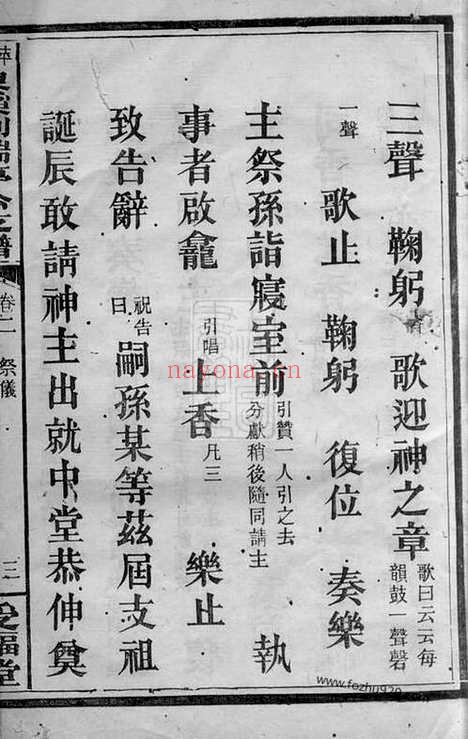 三聲　鞠躬　歌迎神之章　歌曰云云每韻鼓一聲磬
一聲　歌止　鞠躬　復位　奏樂
主祭孫詣寢室前　引贊一人引之去分獻稍後隨同請主　執
事者啟龕　引唱上香　凡三　樂止
致告辭　祝告曰　嗣孫某等茲屆支祖
誕辰敢請神主出就中堂恭伸奠
支譜　卷二　祭儀　三　受福堂
nayona.cn
www.fozhu920